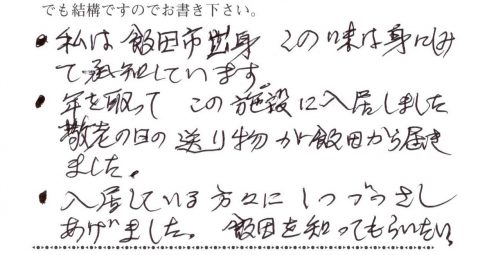 でも結構ですのでお書き下さい。
● 私は飯田市出身 この味は身にしみ
て承知しています。
● 年を取って この施設に入居しました
敬老の日の送り物が飯田から届き
ました。
● 入居している方々に1つづつさし
あげました。 飯田を知ってもらいたい